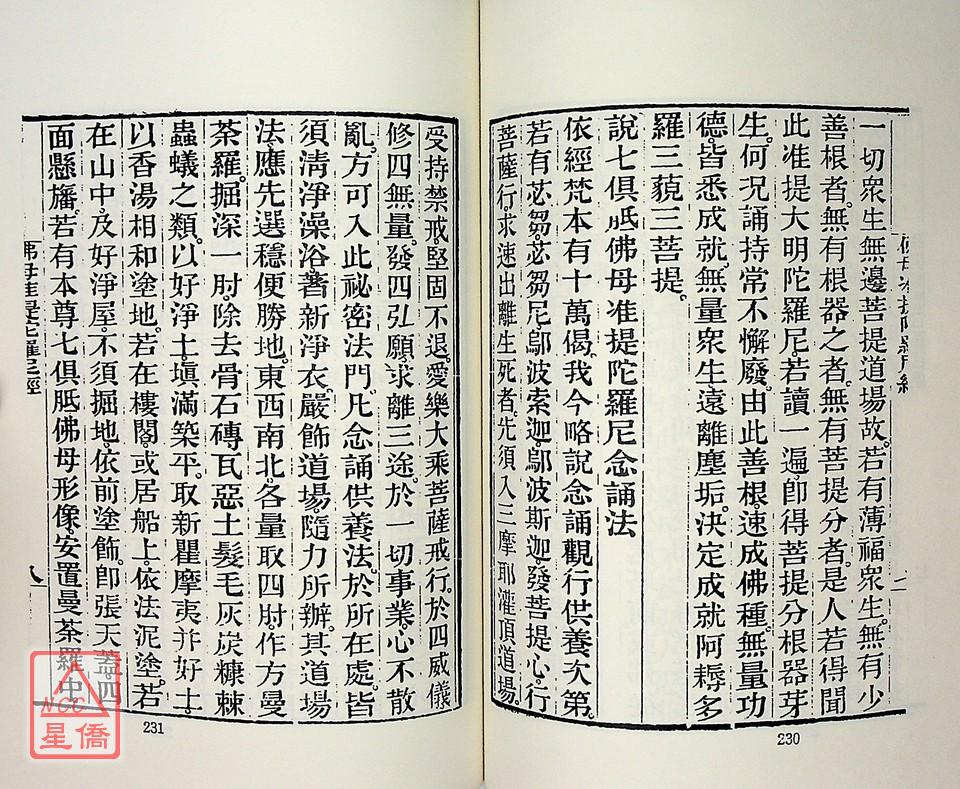 一切衆生無邊菩提道場故。若有薄福衆生。無有少
善根者。無有根器之者。無有菩提分者。是人若得聞
此准提大明陀羅尼。若讀一遍。卽得菩提分根器芽
生。何況誦持常不懈廢。由此善根。速成佛種。無量功
德。皆悉成就。無量衆生。遠離塵垢。決定成就阿耨多
羅三藐三菩提。
說七俱胝佛母准提陀羅尼念誦法
依經梵本有十萬偈。我今略說念誦觀行供養次第。
若有苾芻。苾芻尼。鄔波索迦。鄔波斯迦。發菩提心。行
菩薩行。求速出離生死者。先須入三摩耶灌頂道場。
230
受持禁戒。堅固不退。愛樂大乘菩薩戒行。於四威儀
修四無量。發四弘願。求離三途。於一切事業。心不散
亂。方可入此祕密法門。凡念誦供養法。於所在處。皆
須淸淨澡浴。著新淨衣。嚴飾道場。隨力所辦。其道場
法。應先選穩便勝地。東西南北。各量取四肘。作方曼
荼羅。掘深一肘。除去骨石磚瓦惡土髮毛灰炭糠棘
蟲蟻之類。以好淨土。塡滿築平。取新瞿摩夷幷好土。
以香湯相和塗地。若在樓閣。或居船上。依法泥塗。若
在山中。及好淨屋。不須掘地。依前塗飾。卽張天蓋。四
面懸旛。若有本尊七俱胝佛母形像。安置曼荼羅中
佛母准提陀羅尼經
八
231
NCC
星僑